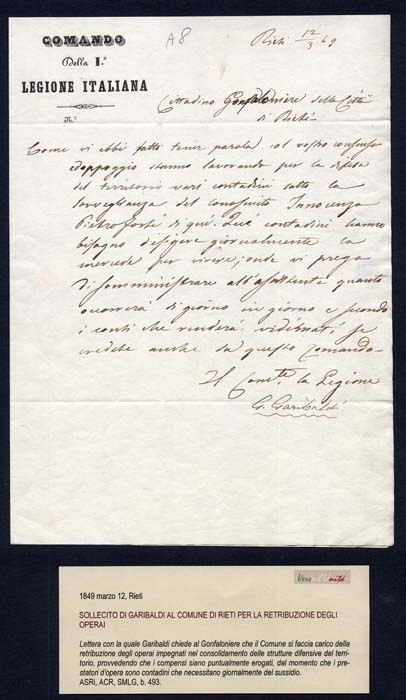 COMANDO
Della I.ª
LEGIONE ITALIANA
N.º
A8
Rieti 12/3 49
Cittadino Gonfaloniere della Città
di Rieti
Come vi ebbi fatto tener parola col vostro consenso
d'appoggio stanno lavorando per la difesa
del territorio vari contadini sotto la
sorveglianza del conosciuto Innocenzo
Pietroforte di qui. Quei contadini hanno
bisogno d'esigere giornalmente la
mercede per vivere; onde vi prego
di somministrare all'assistente quanto
occorrerà di giorno in giorno e secondo
i conti che renderà vidimati, se
credete anche da questo Comando
Il Com.te la Legione
G. Garibaldi
1849 marzo 12, Rieti
SOLLECITO DI GARIBALDI AL COMUNE DI RIETI PER LA RETRIBUZIONE DEGLI
OPERAI
Lettera con la quale Garibaldi chiede al Gonfaloniere che il Comune si faccia carico della
retribuzione degli operai impegnati nel consolidamento delle strutture difensive del terri-
torio, provvedendo che i compensi siano puntualmente erogati, dal momento che i pre-
statori d'opera sono contadini che necessitano giornalmente del sussidio.
ASRi, ACR, SMLG, b. 493.